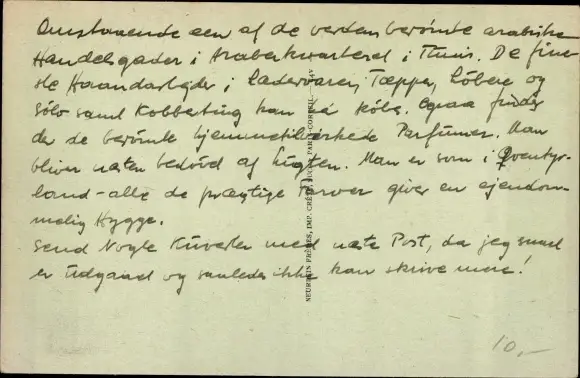 Omstaaende een af de verdensberømte arabiske
Handelsgader i Araberkvarteret i Tunis. De fine
ste Haandarbejder i Lædervarer, Tæpper, Løbere og
Sølv samt Kobberting kan vi købe. Ogsaa findes
der de berømte hjemmetilvirkede Parfumer. Man
bliver næsten bedøvd af Lugten. Man er som i Eventyr-
land - alle de prægtige Farver giver en ejendom-
melig Hygge.
Send Nogle Kuverter med næste Post, da jeg snart
er udgaaet og saaledes ikke kan skrive mere!
10,-
NEURDEIN FRÈRES, IMP. CRÉTÉ, SUCC. PARIS-CORBEIL.